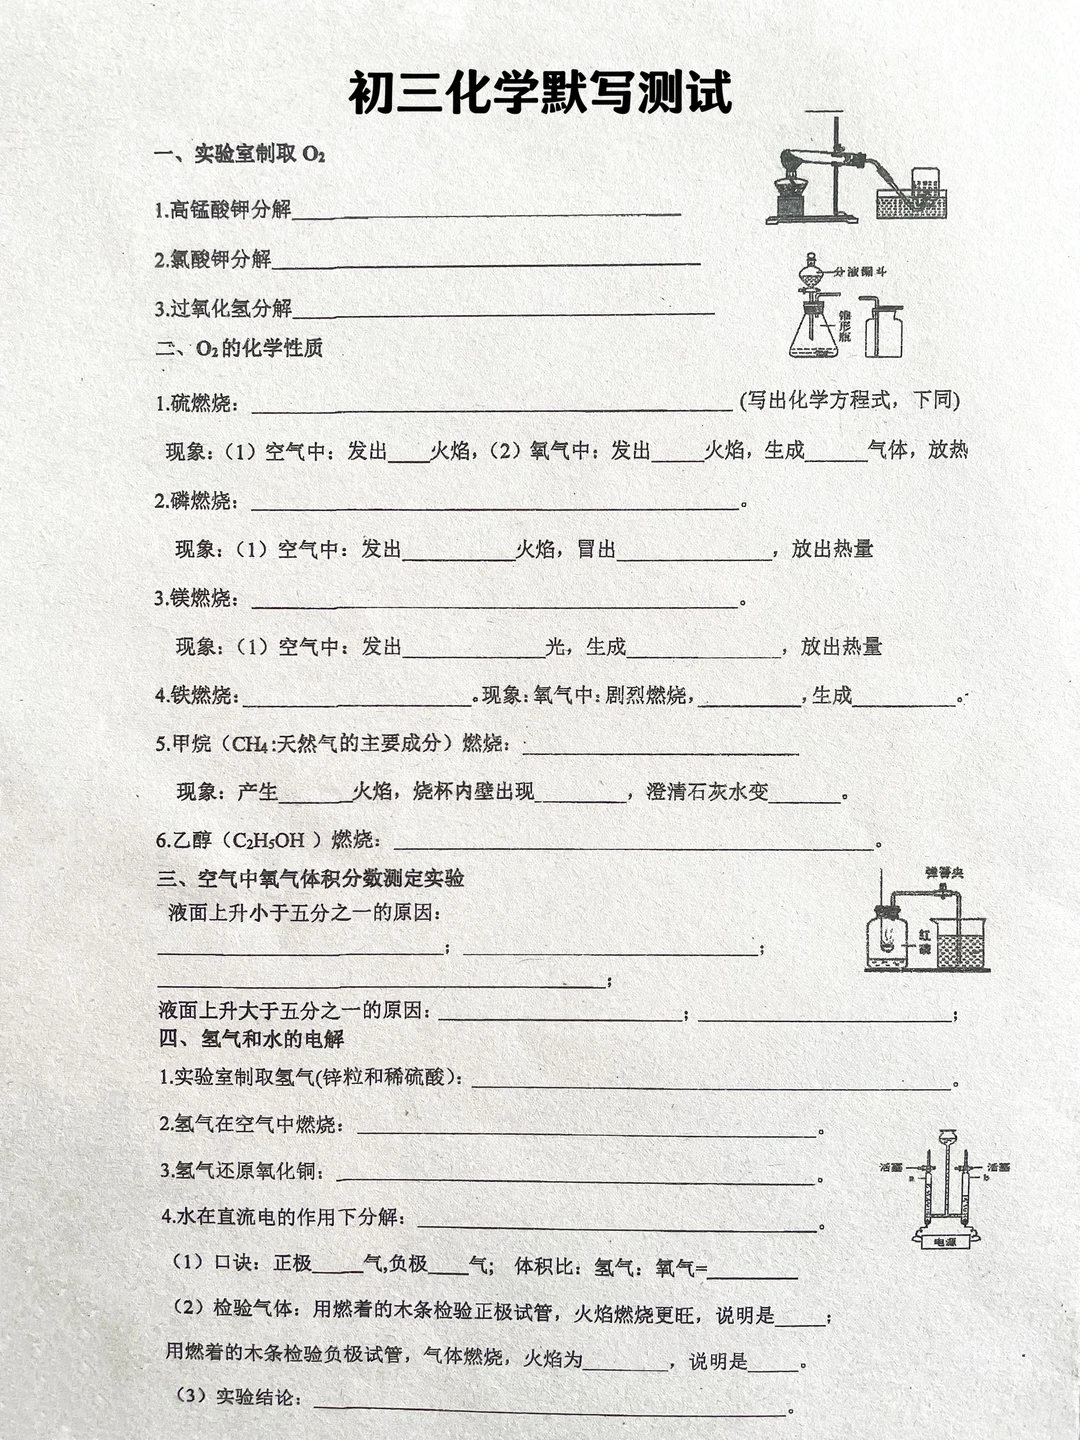 初三化学默写测试
一、实验室制取 O₂
1.高锰酸钾分解____________
2.氯酸钾分解____________
分液漏斗
3.过氧化氢分解____________
锥形瓶
二、O₂的化学性质
1.硫燃烧：____________(写出化学方程式，下同)
现象：（1）空气中：发出____火焰，（2）氧气中：发出_____火焰，生成______气体，放热
2.磷燃烧：____________。
现象：（1）空气中：发出__________火焰，冒出____________，放出热量
3.镁燃烧：____________。
现象：（1）空气中：发出____________光，生成____________，放出热量
4.铁燃烧：____________。现象：氧气中：剧烈燃烧，__________，生成__________。
5.甲烷（CH₄:天然气的主要成分）燃烧：____________
现象：产生_______火焰，烧杯内壁出现_________，澄清石灰水变_______。
6.乙醇（C₂H₅OH ）燃烧：____________。
三、空气中氧气体积分数测定实验
弹簧夹
液面上升小于五分之一的原因：
红磷
____________；____________；
____________；
液面上升大于五分之一的原因：____________；____________；
四、氢气和水的电解
1.实验室制取氢气(锌粒和稀硫酸)：____________。
2.氢气在空气中燃烧：____________。
3.氢气还原氧化铜：____________。
活塞 活塞
a b
4.水在直流电的作用下分解：____________。
电源
（1）口诀：正极_____气,负极____气； 体积比：氢气：氧气=_________
（2）检验气体：用燃着的木条检验正极试管，火焰燃烧更旺，说明是_____；
用燃着的木条检验负极试管，气体燃烧，火焰为________，说明是_____。
（3）实验结论：____________。